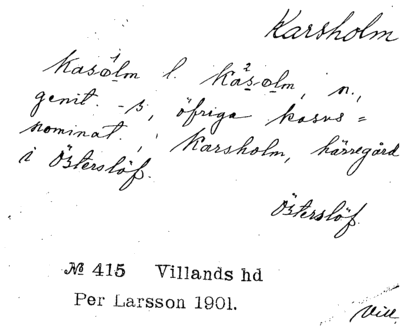 Karsholm
Kasolm l. Kasolm, n.,
genit. -s, öfriga kasus =
nominat.; Karsholm, härregård
i Österslöf.
Österslöf.
№ 415 Villands hd
Per Larsson 1901.
Vill.